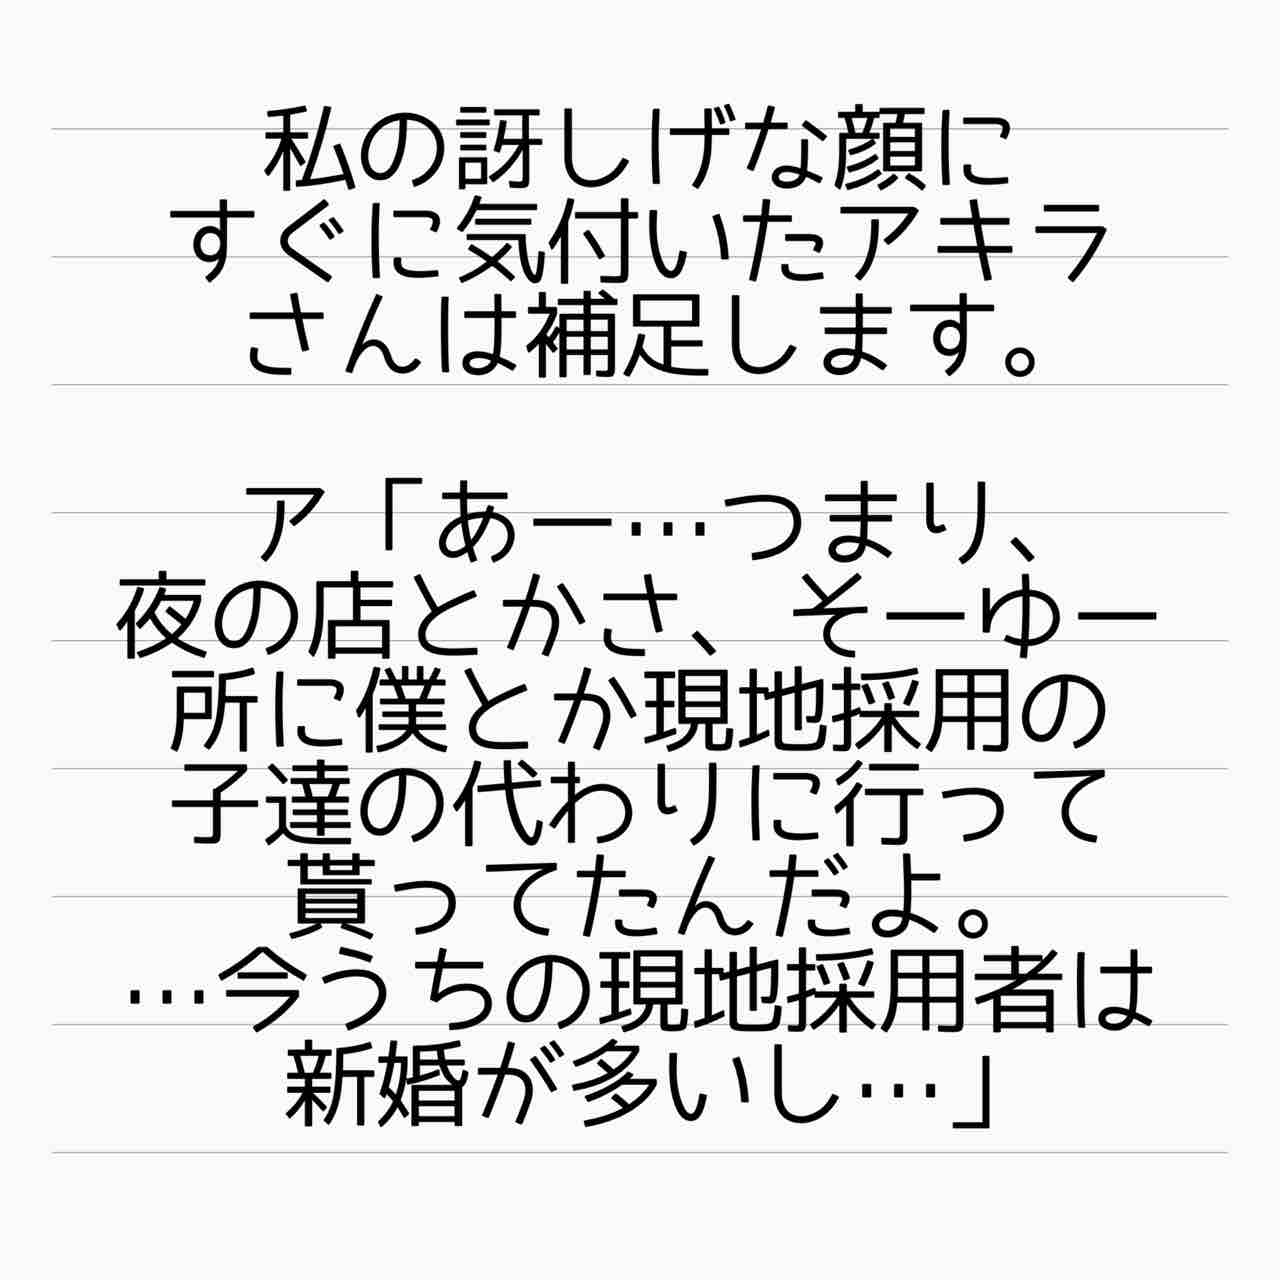 私の訝しげな顔に
すぐに気付いたアキラ
さんは補足します。
ア「あー…つまり、
夜の店とかさ、そーゆー
所に僕とか現地採用の
子達の代わりに行って
貰ってたんだよ。
…今うちの現地採用者は
新婚が多いし…」